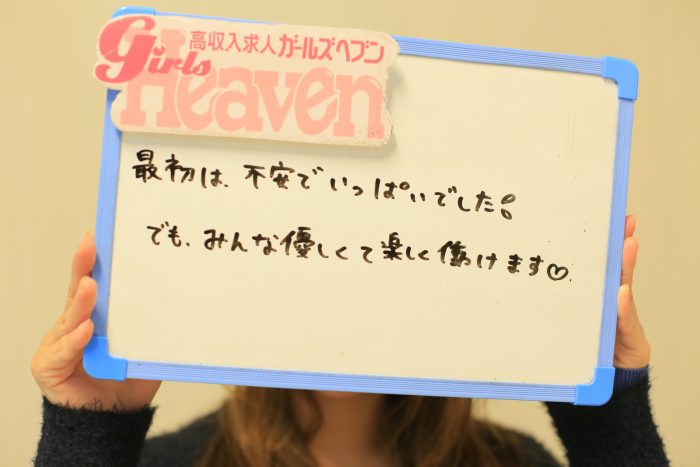 高収入求人ガールズヘブン
Girls
Heaven
最初は、不安でいっぱいでした
でも、みんな優しくて楽しく働けます♡